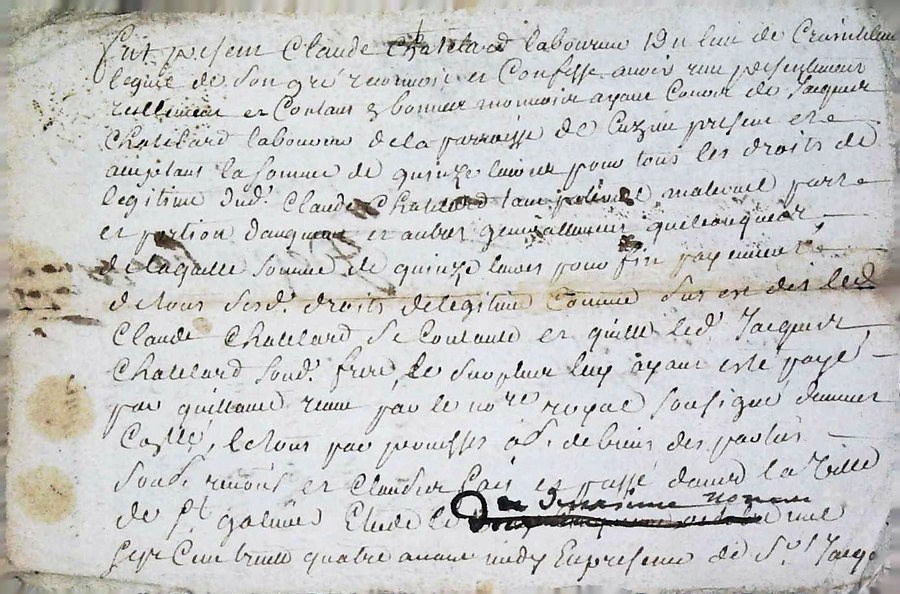 fut present Claude Chatelard laboureur du lieu de
lequel de son gré reconnoit et Confesse avoir reçu presentement
reellement et Contant en bonne monnoie ayant Cours de Jacques
Chatelard laboureur de la parroisse de Cuzieu present et
acceptant la somme de quinze livres pour tous les droits de
legitime dud. Claude Chatelard tant paternel maternel parts
et portion d'augment et autres generallement quelconques
de laquelle somme de quinze livres pour fin payement
de tous sesd. droits de legitime Comme sus est dit led
Claude Chatelard se Contante et quitte led. Jacques
Chatelard sond. frere, le surplus luy ayant esté payé
par quittance reçue par le no.re royal soussigné
le tout par promesses obl. de biens des parties
soub. renons et Clauses fait et passé dans la ville
de St galmier Etude le novem mil
sept Cent trente quatre avant midy En presence de Sr Jacq